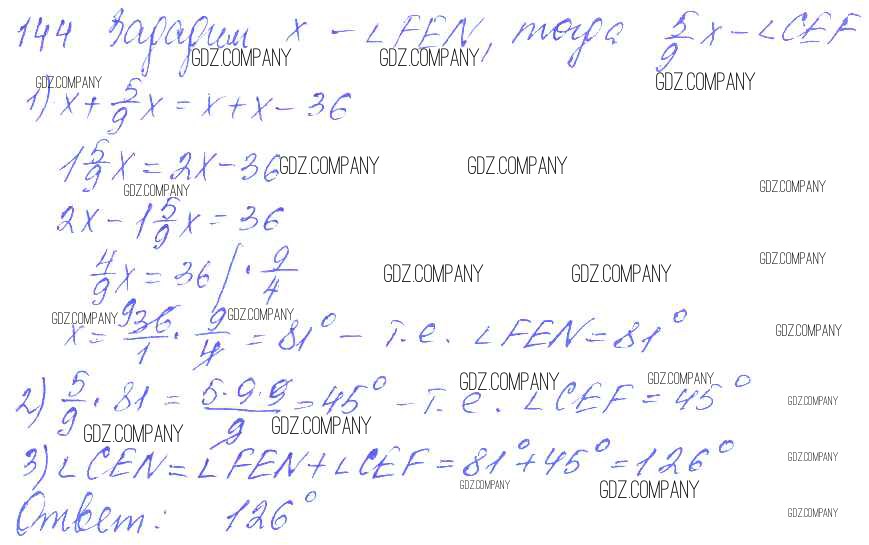 144 Зададим x - ∠FEN, тогда 5/9 x - ∠CEF
GDZ.COMPANY GDZ.COMPANY GDZ.COMPANY
GDZ.COMPANY
1) x + 5/9 x = x + x - 36
1 5/9 x = 2x - 36 GDZ.COMPANY GDZ.COMPANY
GDZ.COMPANY GDZ.COMPANY
2x - 1 5/9 x = 36
4/9 x = 36 | · 9/4 GDZ.COMPANY GDZ.COMPANY GDZ.COMPANY
GDZ.COMPANY GDZ.COMPANY GDZ.COMPANY
x = 9 36/1 · 9/4 = 81° - т.е. ∠FEN = 81°
GDZ.COMPANY GDZ.COMPANY GDZ.COMPANY
2) 5/9 · 81 = 5·9·9/9 = 45° - т.е. ∠CEF = 45°
GDZ.COMPANY GDZ.COMPANY GDZ.COMPANY
3) ∠CEN = ∠FEN + ∠CEF = 81° + 45° = 126°
GDZ.COMPANY GDZ.COMPANY GDZ.COMPANY
Ответ: 126°